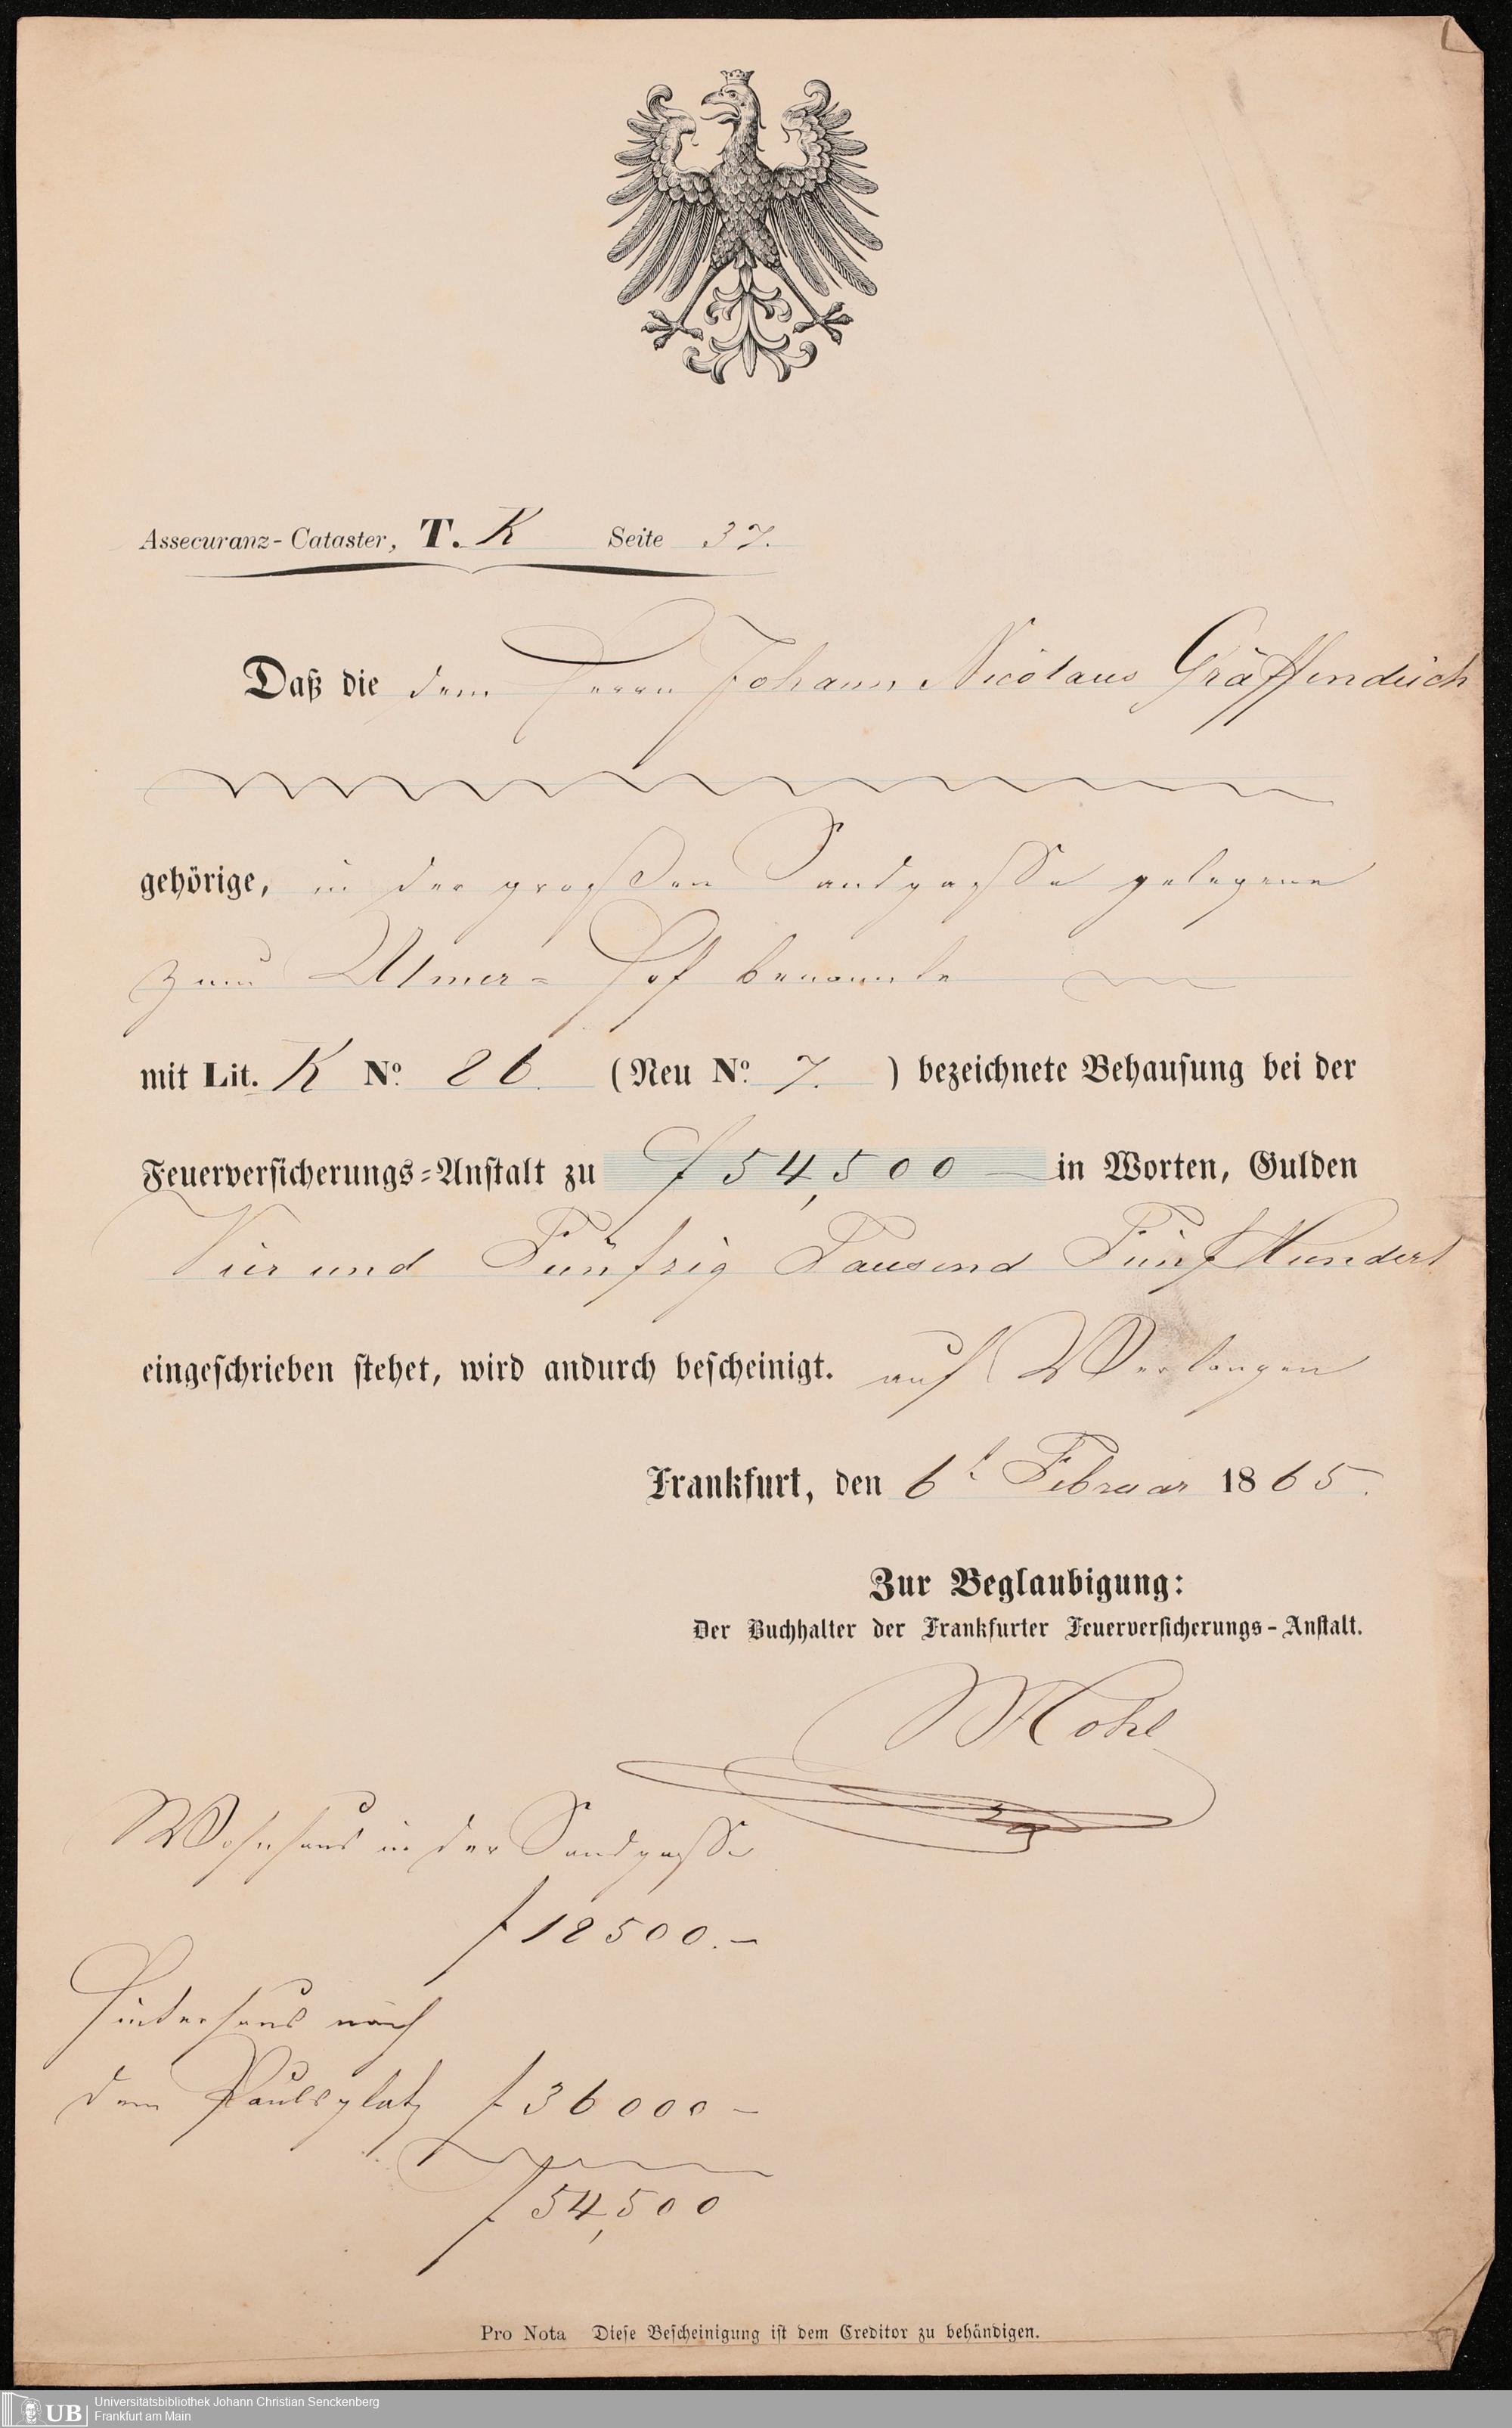 Assecuranz-Cataster, T. K Seite 37.
Daß die dem Herrn Johann Nicolaus Gräffendeich
gehörige, in der großen Sandgasse gelegene
zum Ulmer= Hof benannte
mit Lit. K No. 86. (Neu No. 7. ) bezeichnete Behausung bei der
Feuerversicherungs=Anstalt zu f 54,500 — in Worten, Gulden
Vier und Fünfzig Tausend Fünf Hundert
eingeschrieben stehet, wird andurch bescheinigt. auf Verlangen
Frankfurt, den 6t Februar 1865.
Zur Beglaubigung:
Der Buchhalter der Frankfurter Feuerversicherungs-Anstalt.
Mohl
Wohnhaus in der Sandgasse
f 18500.—
Hinterhaus nach
dem Paulsplatz f 36000 —
f 54,500
Pro Nota Diese Bescheinigung ist dem Creditor zu behändigen.
UB Universitätsbibliothek Johann Christian Senckenberg
Frankfurt am Main